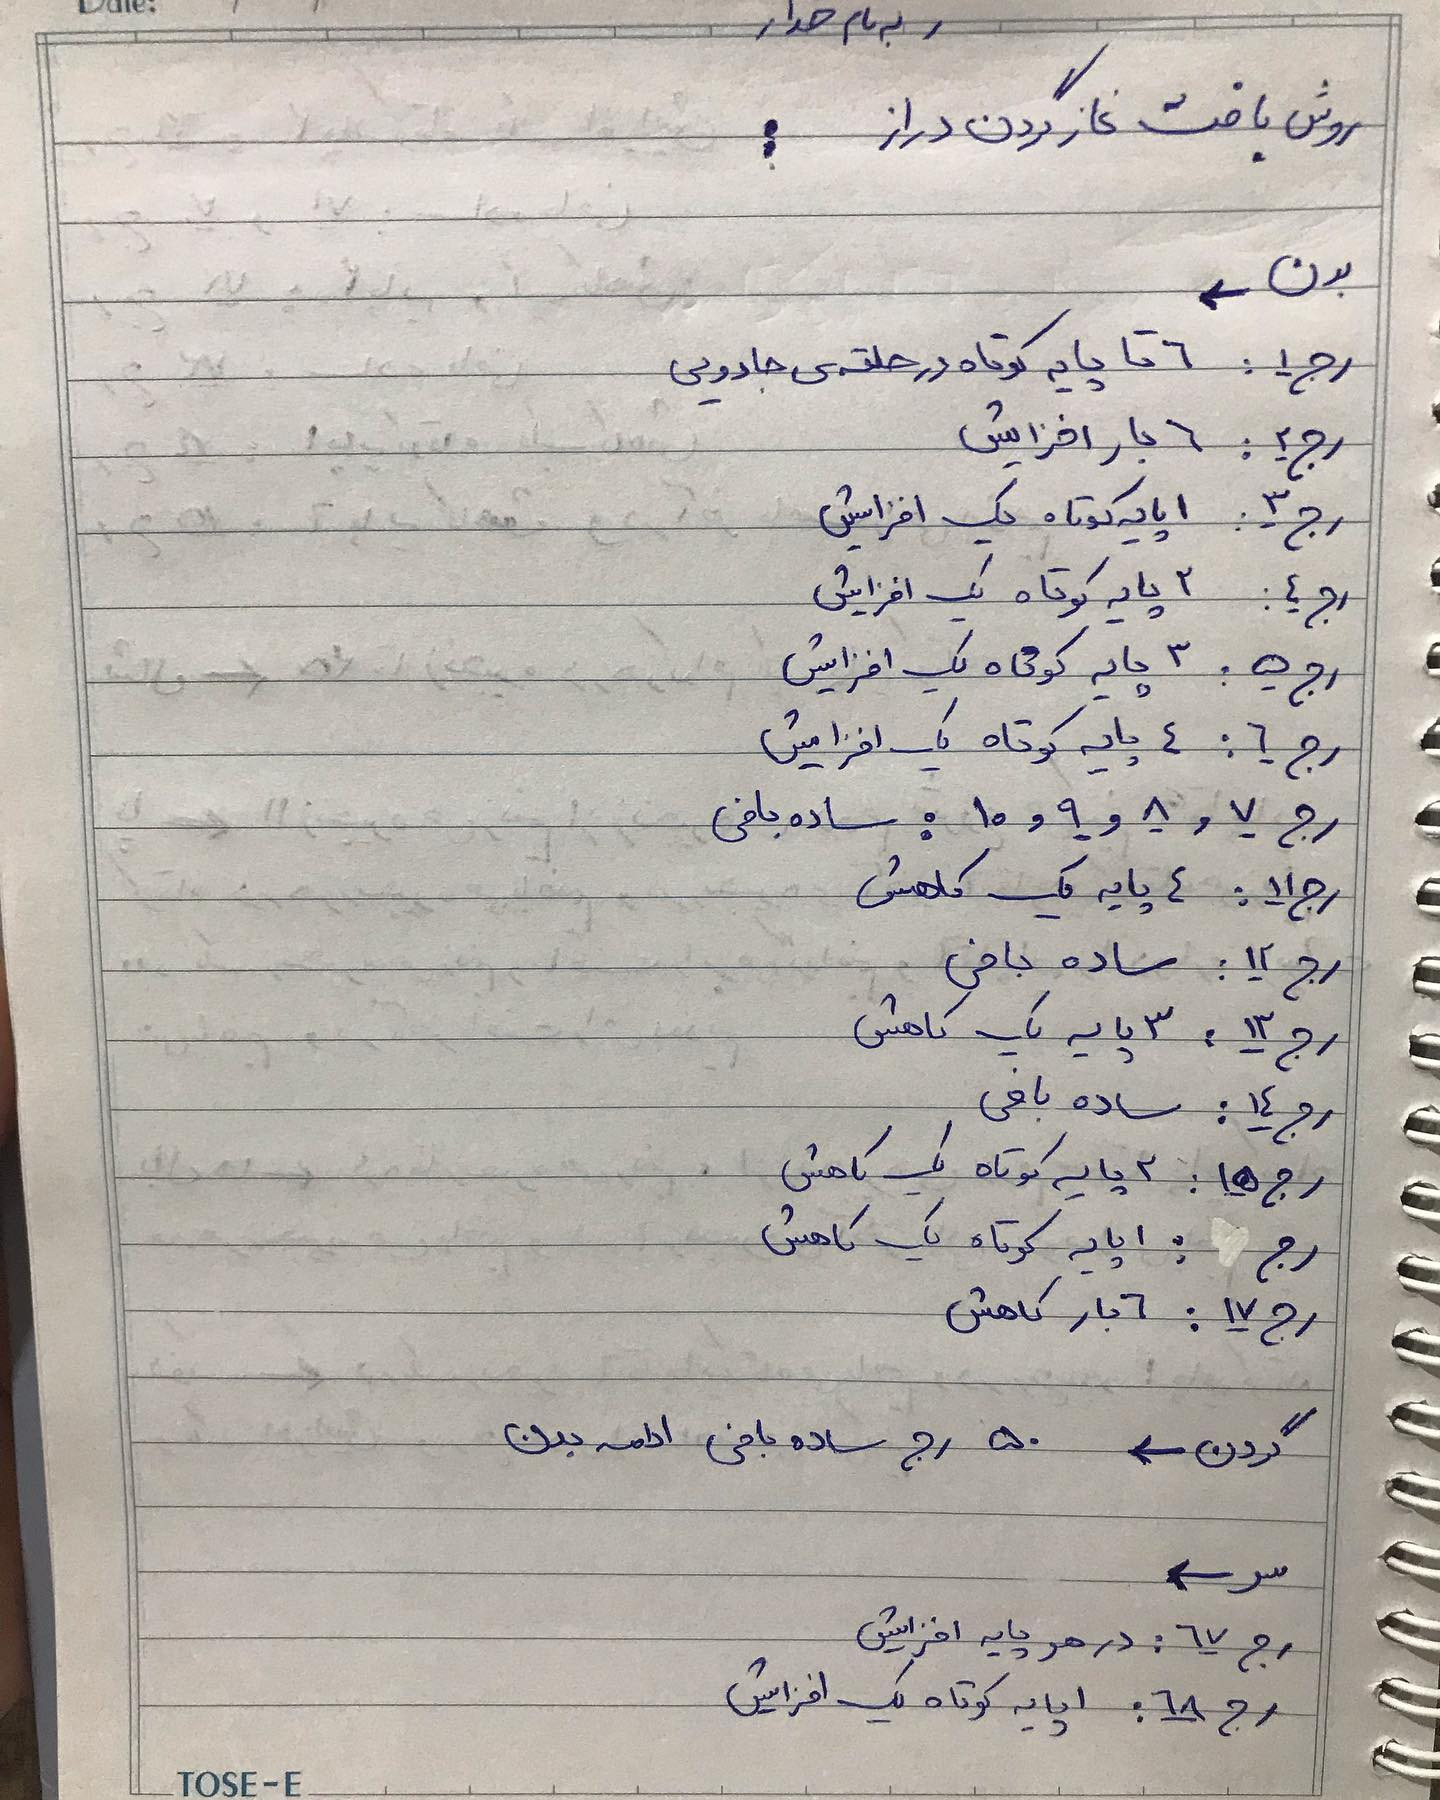 Date: / /
به نام خدا
روش بافت غاز گردن دراز :
بدن ←
رج ۱ : ٦ تا پایه کوتاه در حلقه‌ی جادویی
رج ۲ : ٦ بار افزایش
رج ۳ : ۱ پایه کوتاه یک افزایش
رج ٤ : ۲ پایه کوتاه یک افزایش
رج ۵ : ۳ پایه کوتاه یک افزایش
رج ٦ : ٤ پایه کوتاه یک افزایش
رج ۷ و ۸ و ۹ و ۱۰ : ساده بافی
رج ۱۱ : ٤ پایه یک کاهش
رج ۱۲ : ساده بافی
رج ۱۳ : ۳ پایه یک کاهش
رج ۱٤ : ساده بافی
رج ۱۵ : ۲ پایه کوتاه یک کاهش
رج : ۱ پایه کوتاه یک کاهش
رج ۱۷ : ٦ بار کاهش
گردن ← ۵۰ رج ساده بافی ادامه بدن
سر ←
رج ٦۷ : در هر پایه افزایش
رج ٦۸ : ۱ پایه کوتاه یک افزایش
TOSE-E